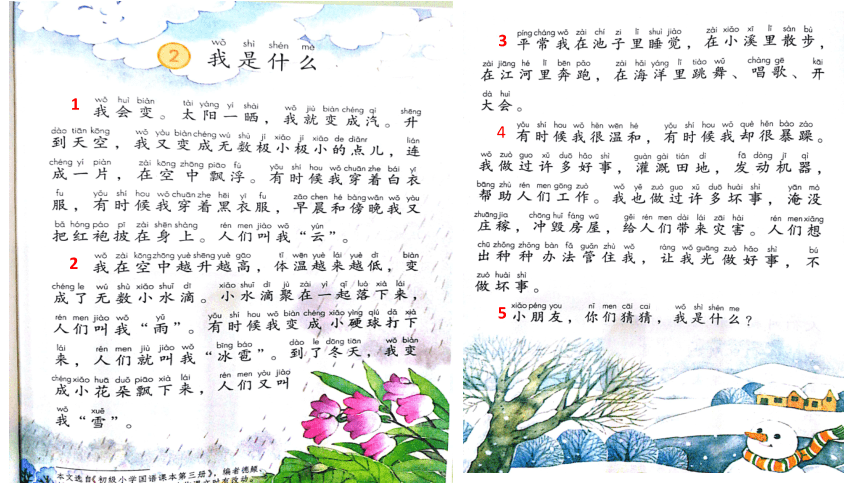 wǒ shì shén me
2 我是什么
wǒ huì biàn tài yáng yí shài wǒ jiù biàn chéng qì shēng
1 我会变。太阳一晒，我就变成汽。升
dào tiān kōng wǒ yòu biàn chéng wú shù jí xiǎo jí xiǎo de diǎnr lián
到天空，我又变成无数极小极小的点儿，连
chéng yí piàn zài kōng zhōng piāo fú yǒu shí hou wǒ chuān zhe bái yī
成一片，在空中飘浮。有时候我穿着白衣
fu yǒu shí hou wǒ chuān zhe hēi yī fu zǎo chen hé bàng wǎn wǒ yòu
服，有时候我穿着黑衣服，早晨和傍晚我又
bǎ hóng páo pī zài shēn shàng rén men jiào wǒ yún
把红袍披在身上。人们叫我“云”。
wǒ zài kōng zhōng yuè shēng yuè gāo tǐ wēn yuè lái yuè dī biàn
2 我在空中越升越高，体温越来越低，变
chéng le wú shù xiǎo shuǐ dī xiǎo shuǐ dī jù zài yì qǐ luò xià lái
成了无数小水滴。小水滴聚在一起落下来，
rén men jiào wǒ yǔ yǒu shí hou wǒ biàn chéng xiǎo yìng qiú dǎ xià
人们叫我“雨”。有时候我变成小硬球打下
lái rén men jiù jiào wǒ bīng báo dào le dōng tiān wǒ biàn
来，人们就叫我“冰雹”。到了冬天，我变
chéng xiǎo huā duǒ piāo xià lái rén men yòu jiào
成小花朵飘下来，人们又叫
wǒ xuě
我“雪”。
本文选自《初级小学国语课本第三册》，编者德颖，
píng cháng wǒ zài chí zi lǐ shuì jiào zài xiǎo xī lǐ sàn bù
3 平常我在池子里睡觉，在小溪里散步，
zài jiāng hé lǐ bēn pǎo zài hǎi yáng lǐ tiào wǔ chàng gē kāi
在江河里奔跑，在海洋里跳舞、唱歌、开
dà huì
大会。
yǒu shí hou wǒ hěn wēn hé yǒu shí hou wǒ què hěn bào zào
4 有时候我很温和，有时候我却很暴躁。
wǒ zuò guo xǔ duō hǎo shì guàn gài tián dì fā dòng jī qì
我做过许多好事，灌溉田地，发动机器，
bāng zhù rén men gōng zuò wǒ yě zuò guo xǔ duō huài shì yān mò
帮助人们工作。我也做过许多坏事，淹没
zhuāng jia chōng huǐ fáng wū gěi rén men dài lái zāi hài rén men xiǎng
庄稼，冲毁房屋，给人们带来灾害。人们想
chū zhǒng zhǒng bàn fǎ guǎn zhù wǒ ràng wǒ guāng zuò hǎo shì bú
出种种办法管住我，让我光做好事，不
zuò huài shì
做坏事。
xiǎo péng you nǐ men cāi cai wǒ shì shén me
5 小朋友，你们猜猜，我是什么？